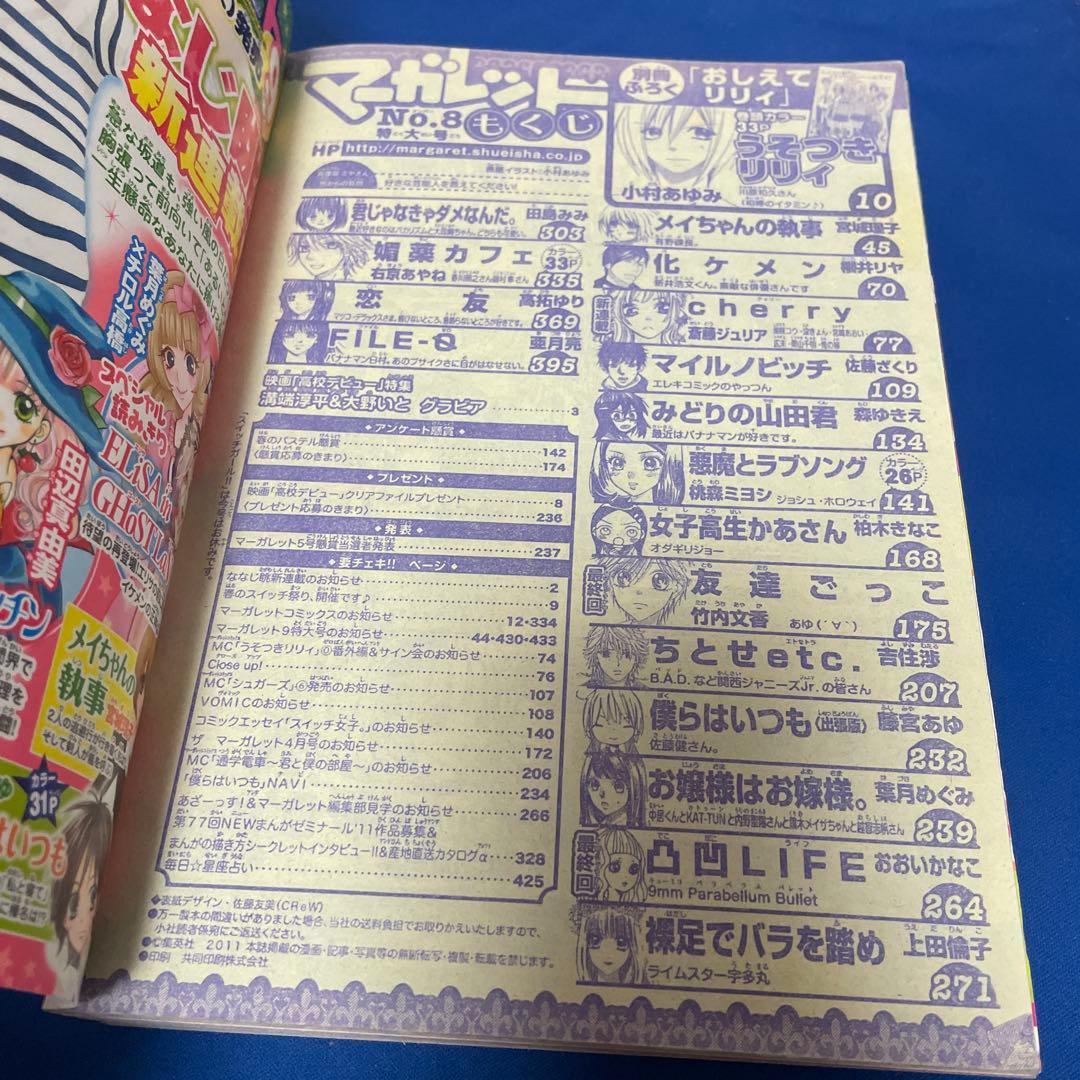 新連載
急な坂道も、強い風の日も
胸張って前向いて「あ
一生懸命なあなたに
葉月めぐみ
×チロル高橋
スペシャル
読みきり
ELiSA in
GHoSTLA
田辺真由美
メイちゃんの
執事
カラー
31P
はいつも
マーガレット
No.8
特大号
もくじ
HP http://margaret.shueisha.co.jp
表紙イラスト:小村あゆみ
好きな芸能人を教えてください!
君じゃなきゃダメなんだ。 田島みみ
303
媚薬カフェ カラー33P
右京あやね
335
恋友 高祐ゆり
369
FILE-Q 亜月亮
バナナマン日村。あのブサイクさに目がはなせない。
395
映画「高校デビュー」特集
溝端淳平&大野いと グラビア 3
◆アンケート懸賞◆
春のパステル懸賞 142
〈懸賞応募のきまり〉 174
◆プレゼント◆
映画「高校デビュー」クリアファイルプレゼント 8
〈プレゼント応募のきまり〉 236
◆発表◆
マーガレット5号懸賞当選者発表 237
◆要チェキ!! ページ◆
ななじ眺新連載のお知らせ 2
春のスイッチ祭り、開催です♪ 9
マーガレットコミックスのお知らせ 12・334
マーガレット9特大号のお知らせ 44・430・433
MC「うそつきリリィ」⓪番外編&サイン会のお知らせ 74
Close up! 76
MC「シュガーズ」⑥発売のお知らせ 107
VOMICのお知らせ 108
コミックエッセイ「スイッチ女子。」のお知らせ 140
ザ マーガレット4月号のお知らせ 172
MC「通学電車〜君と僕の部屋〜」のお知らせ 206
「僕らはいつも」NAVI 234
あざーっす!&マーガレット編集部見学のお知らせ 266
第77回NEWまんがゼミナール'11作品募集&
まんがの描き方シークレットインタビュー!!&産地直送カタログα 328
毎日☆星座占い 425
◆表紙デザイン・佐藤友美(CReW)
●万一製本の間違いがありました場合、当社の送料負担でお取りかえいたしますので、
小社読者係宛にご返送ください。
●©集英社 2011 本誌掲載の漫画・記事・写真等の無断転写・複製・転載を禁じます。
●印刷 共同印刷株式会社
「スイッチガール!!」は今号はお休みです。
別冊ふろく
「おしえてリリィ」
巻頭カラー
33P
うそつきリリィ
小村あゆみ
川原和久さん
10
メイちゃんの執事 宮城理子
45
化ケメン 櫻井リヤ
70
新連載
cherry
斎藤ジュリア
77
マイルノビッチ 佐藤ざくり
エレキコミックのやっつん
109
みどりの山田君 森ゆきえ
最近はバナナマンが好きです。
134
悪魔とラブソング カラー26P
桃森ミヨシ ジョシュ・ホロウェイ
141
女子高生かあさん 柏木きなこ
オダギリジョー
168
最終回
友達ごっこ
竹内文香 あゆ(´∀`)
175
ちとせetc. 吉住渉
B.A.D.など関西ジャニーズJr.の皆さん
207
僕らはいつも(出張版) 藤宮あゆ
佐藤健さん。
232
お嬢様はお嫁様。 葉月めぐみ
239
最終回
凸凹LIFE おおいかなこ
9mm Parabellum Bullet
264
裸足でバラを踏め 上田倫子
ライムスター宇多丸
271